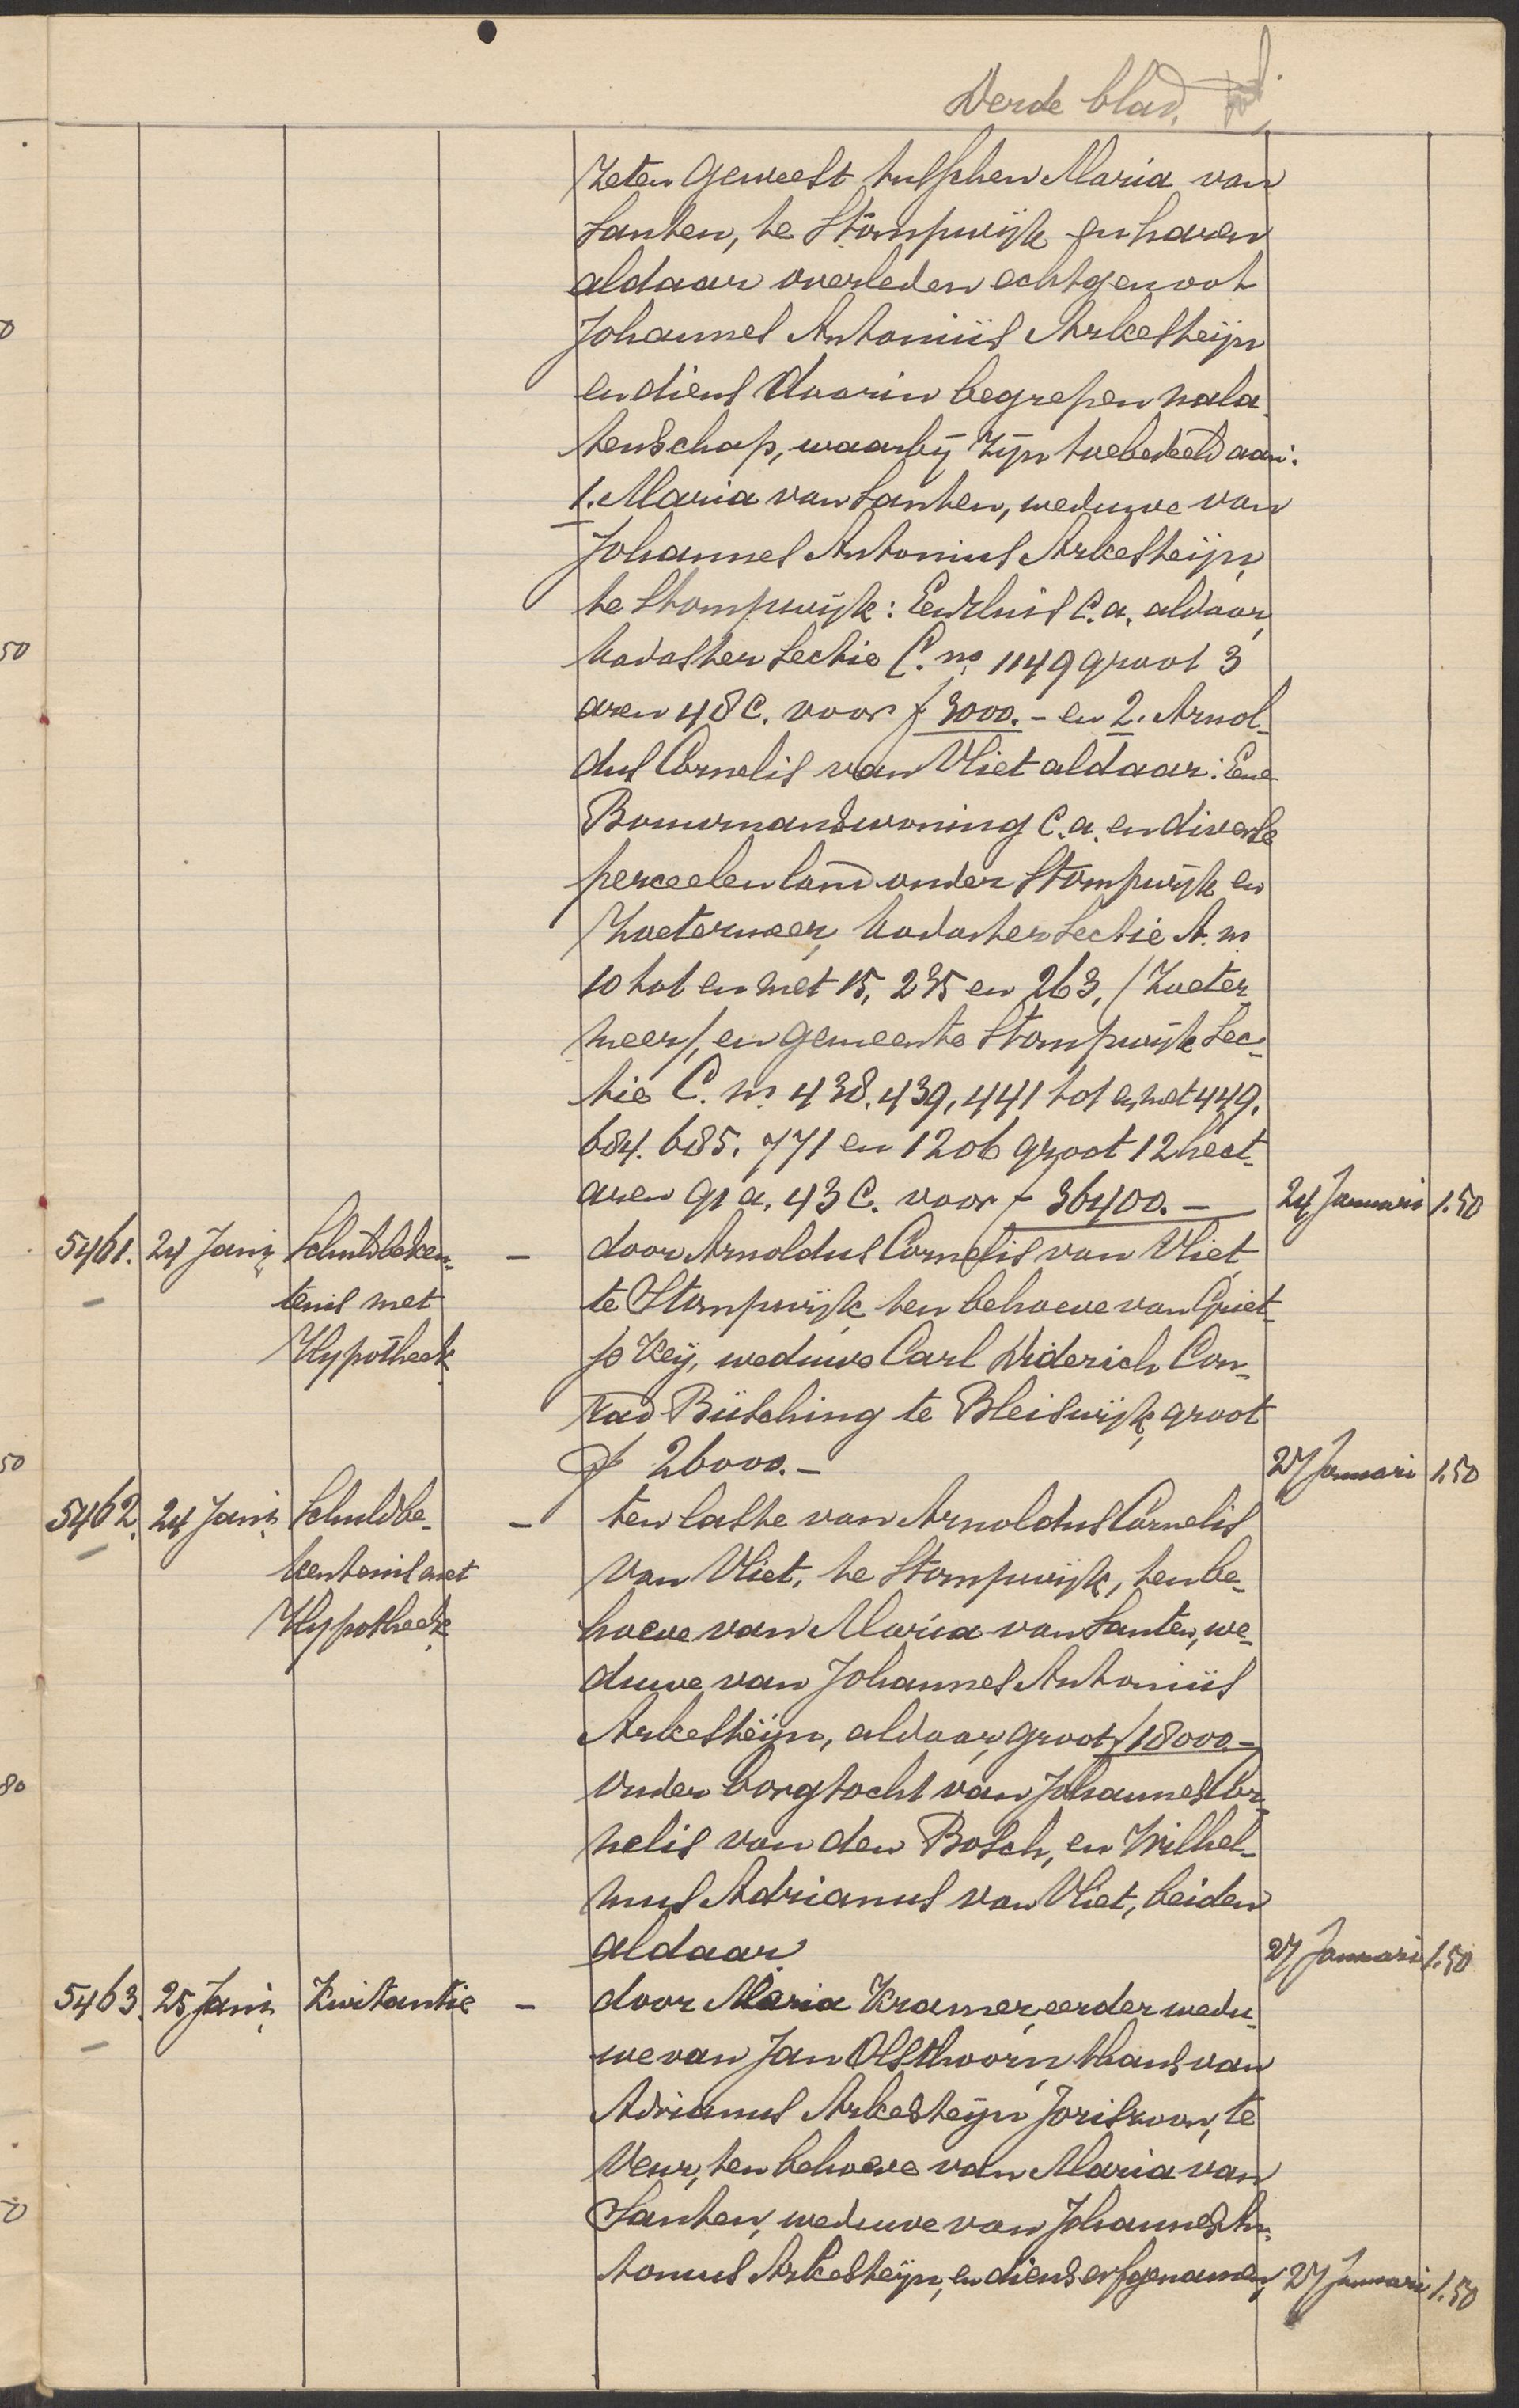 Derde blad.
zeten geweest tusschen Maria van
Santen, te Stompwijk en haren
aldaar overleden echtgenoot
Johannes Antonius Arkesteijn
en diens daarin begrepen nala-
tenschap, waarbij zijn toebedeeld aan:
1. Maria van Santen, weduwe van
Johannes Antonius Arkesteijn,
te Stompwijk: Een huis c.a. aldaar,
kadaster Sectie C. no 1149 groot 3
aren 48 C. voor f 3000.- en 2. Arnol-
dus Cornelis van Vliet aldaar: Eene
Bouwmanswoning c.a. en diverse
perceelen land onder Stompwijk en
Zoetermeer, kadaster Sectie A. no
10 tot en met 15, 235 en 263, (Zoeter-
meer), en gemeente Stompwijk Sec-
tie C. no 438. 439, 441 tot en met 449.
684. 685. 771 en 1206 groot 12 hect-
aren 91 a. 43 C. voor f 36400.- 24 Januari 1.50
5461. 24 Jani Schuldbeken- - door Arnoldus Cornelis van Vliet
tenis met te Stompwijk ten behoeve van Griet-
Hypotheek je Keij, weduwe Carl Diderich Con-
rad Büsching te Bleiswijk, groot
f 26000.- 27 Januari 1.50
5462. 24 Jani Schuldbe- - ten laste van Arnoldus Cornelis
kentenis met van Vliet, te Stompwijk, ten be-
Hypotheek hoeve van Maria van Santen, we-
duwe van Johannes Antonius
Arkesteijn, aldaar, groot f 18000.-
onder borgtocht van Johannes Cor-
nelis van den Bosch, en Wilhel-
mus Adrianus van Vliet, beiden
aldaar. 27 Januari 1.50
5463. 25 Jani Kwitantie - door Maria Kramer, eerder wedu-
we van Jan Olsthoorn, thans van
Adrianus Arkesteijn Joriszoon, te
Veur, ten behoeve van Maria van
Santen, weduwe van Johannes An-
tonius Arkesteijn, en diens erfgenamen, 27 Januari 1.50